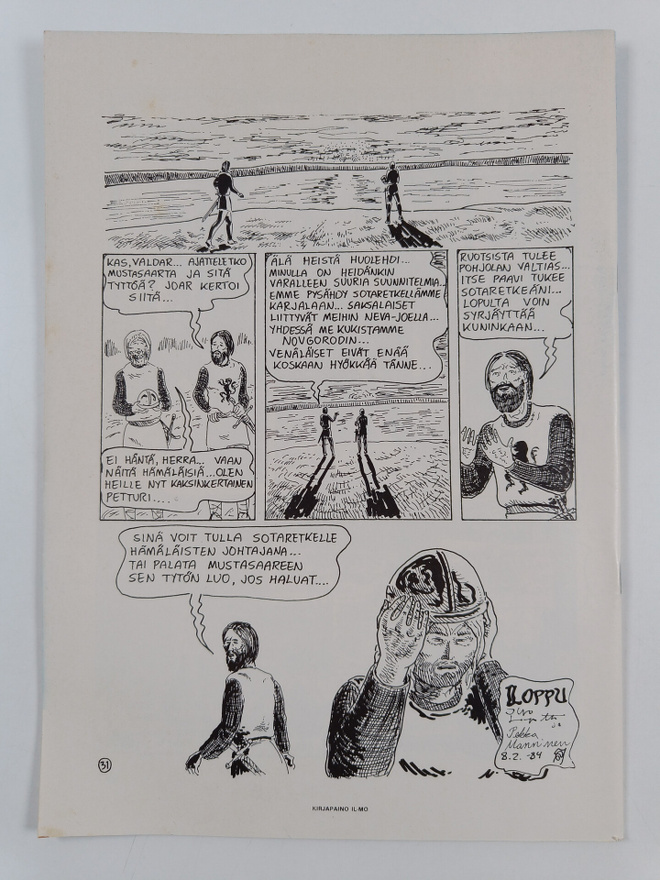 KAS, VALDAR... AJATTELETKO
MUSTASAARTA JA SITÄ
TYTTÖÄ? JOAR KERTOI
SIITÄ...
EI HÄNTÄ, HERRA... VAAN
NÄITÄ HÄMÄLÄISIÄ...OLEN
HEILLE NYT KAKSINKERTAINEN
PETTURI....
ÄLÄ HEISTÄ HUOLEHDI...
MINULLA ON HEIDÄNKIN
VARALLEEN SUURIA SUUNNITELMIA..
EMME PYSÄHDY SOTARETKELLÄMME
KARJALAAN... SAKSALAISET
LIITTYVÄT MEIHIN NEVA-JOELLA...
YHDESSÄ ME KUKISTAMME
NOVGORODIN...
VENÄLÄISET EIVÄT ENÄÄ
KOSKAAN HYÖKKÄÄ TÄNNE...
RUOTSISTA TULEE
POHJOLAN VALTIAS...
ITSE PAAVI TUKEE
SOTARETKEÄNI...
LOPULTA VOIN
SYRJÄYTTÄÄ
KUNINKAAN...
SINÄ VOIT TULLA SOTARETKELLE
HÄMÄLÄISTEN JOHTAJANA...
TAI PALATA MUSTASAAREEN
SEN TYTÖN LUO, JOS HALUAT....
LOPPU
Pekka
Manninen
8.2. -84
31
KIRJAPAINO IL-MO